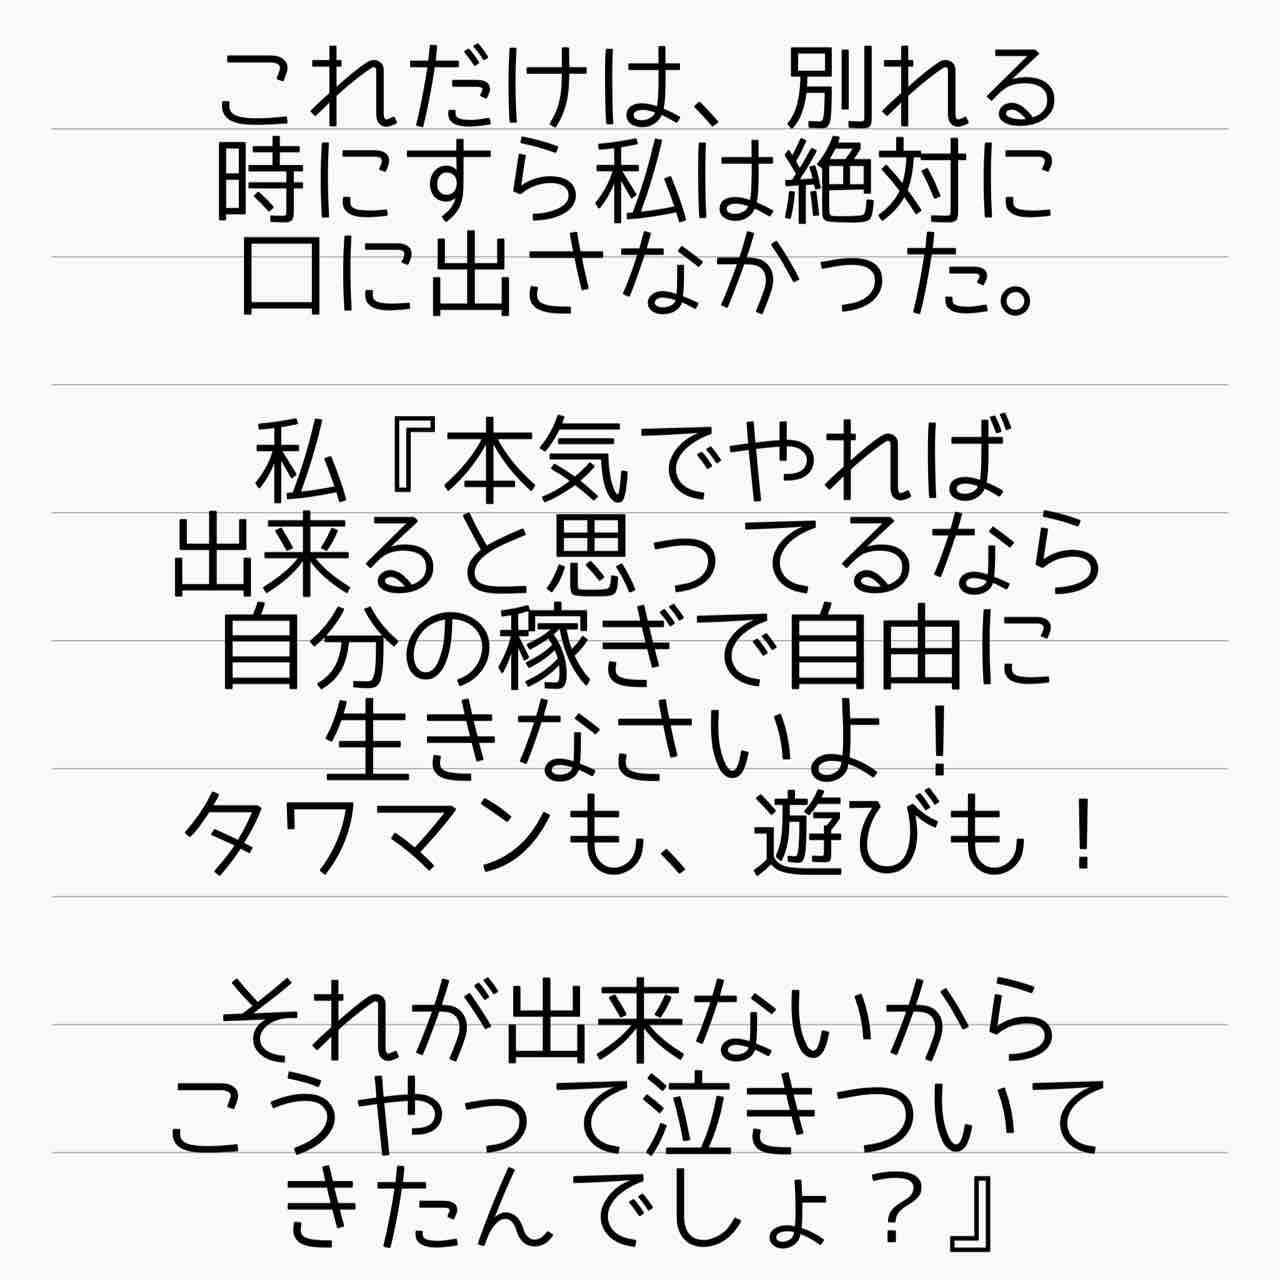 これだけは、別れる
時にすら私は絶対に
口に出さなかった。
私『本気でやれば
出来ると思ってるなら
自分の稼ぎで自由に
生きなさいよ！
タワマンも、遊びも！
それが出来ないから
こうやって泣きついて
きたんでしょ？』